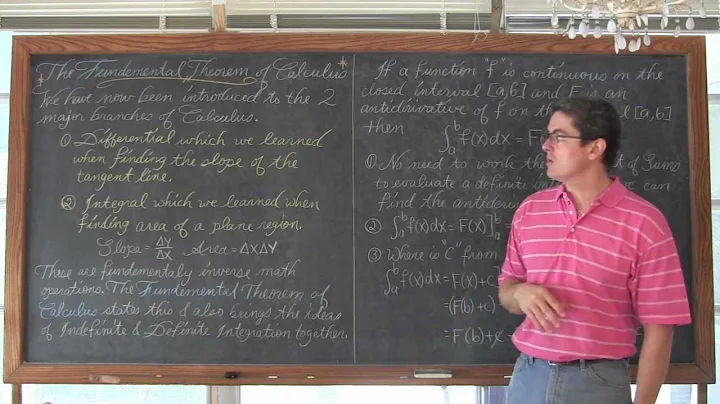 * The Fundemental Theorem of Calculus *
We have now been introduced to the 2
major branches of Calculus.
① Differential which we learned
when finding the slope of the
tangent line.
② Integral which we learned when
finding area of a plane region.
Slope = ΔY/ΔX Area = ΔXΔY
These are fundementaly inverse math
operations. The Fundemental Theorem of
Calculus states this & also brings the ideas
of Indefinite & Definite Integration together.
If a function "f" is continuous on the
closed interval [a,b] and F is an
antiderivative of f on the [a,b]
then ∫ₐᵇ f(x)dx = F
① No need to work the of Sums
to evaluate a definite we can
find the
② ∫ₐᵇ f(x)dx = F(x)]ₐᵇ =
③ Where is "C" from
∫ₐᵇ f(x)dx = F(x)+C
= (F(b)+c)
= F(b)+c